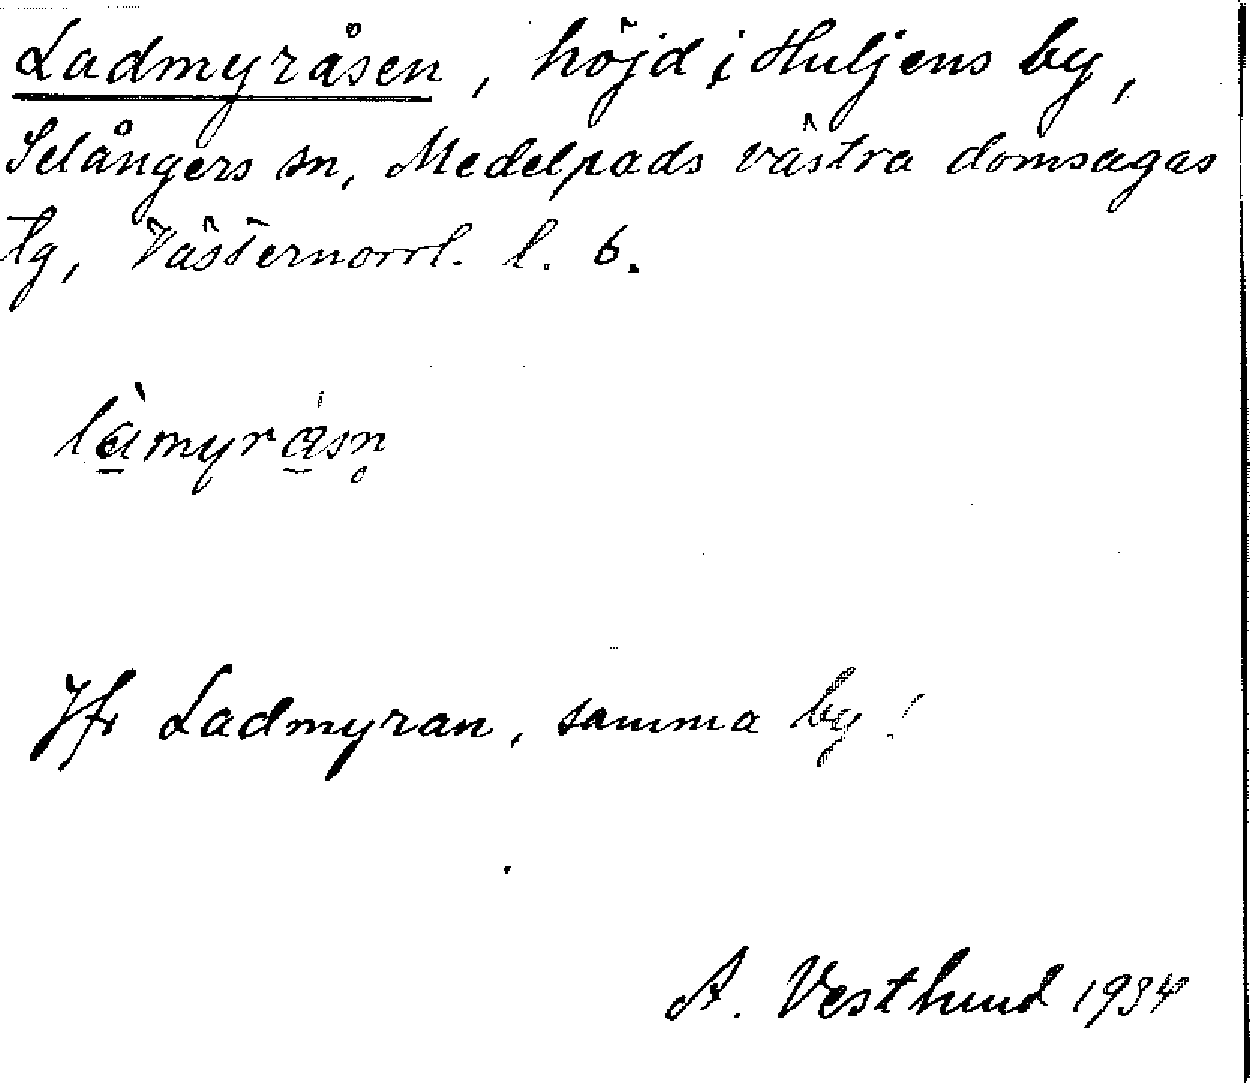 Ladmyråsen, höjd i Huljens by,
Selångers sn, Medelpads västra domsagas
tg, Västernorrl. l. 6.
là̱myra̱sn̥
Jfr Ladmyran, samma by!
A. Vestlund 1934